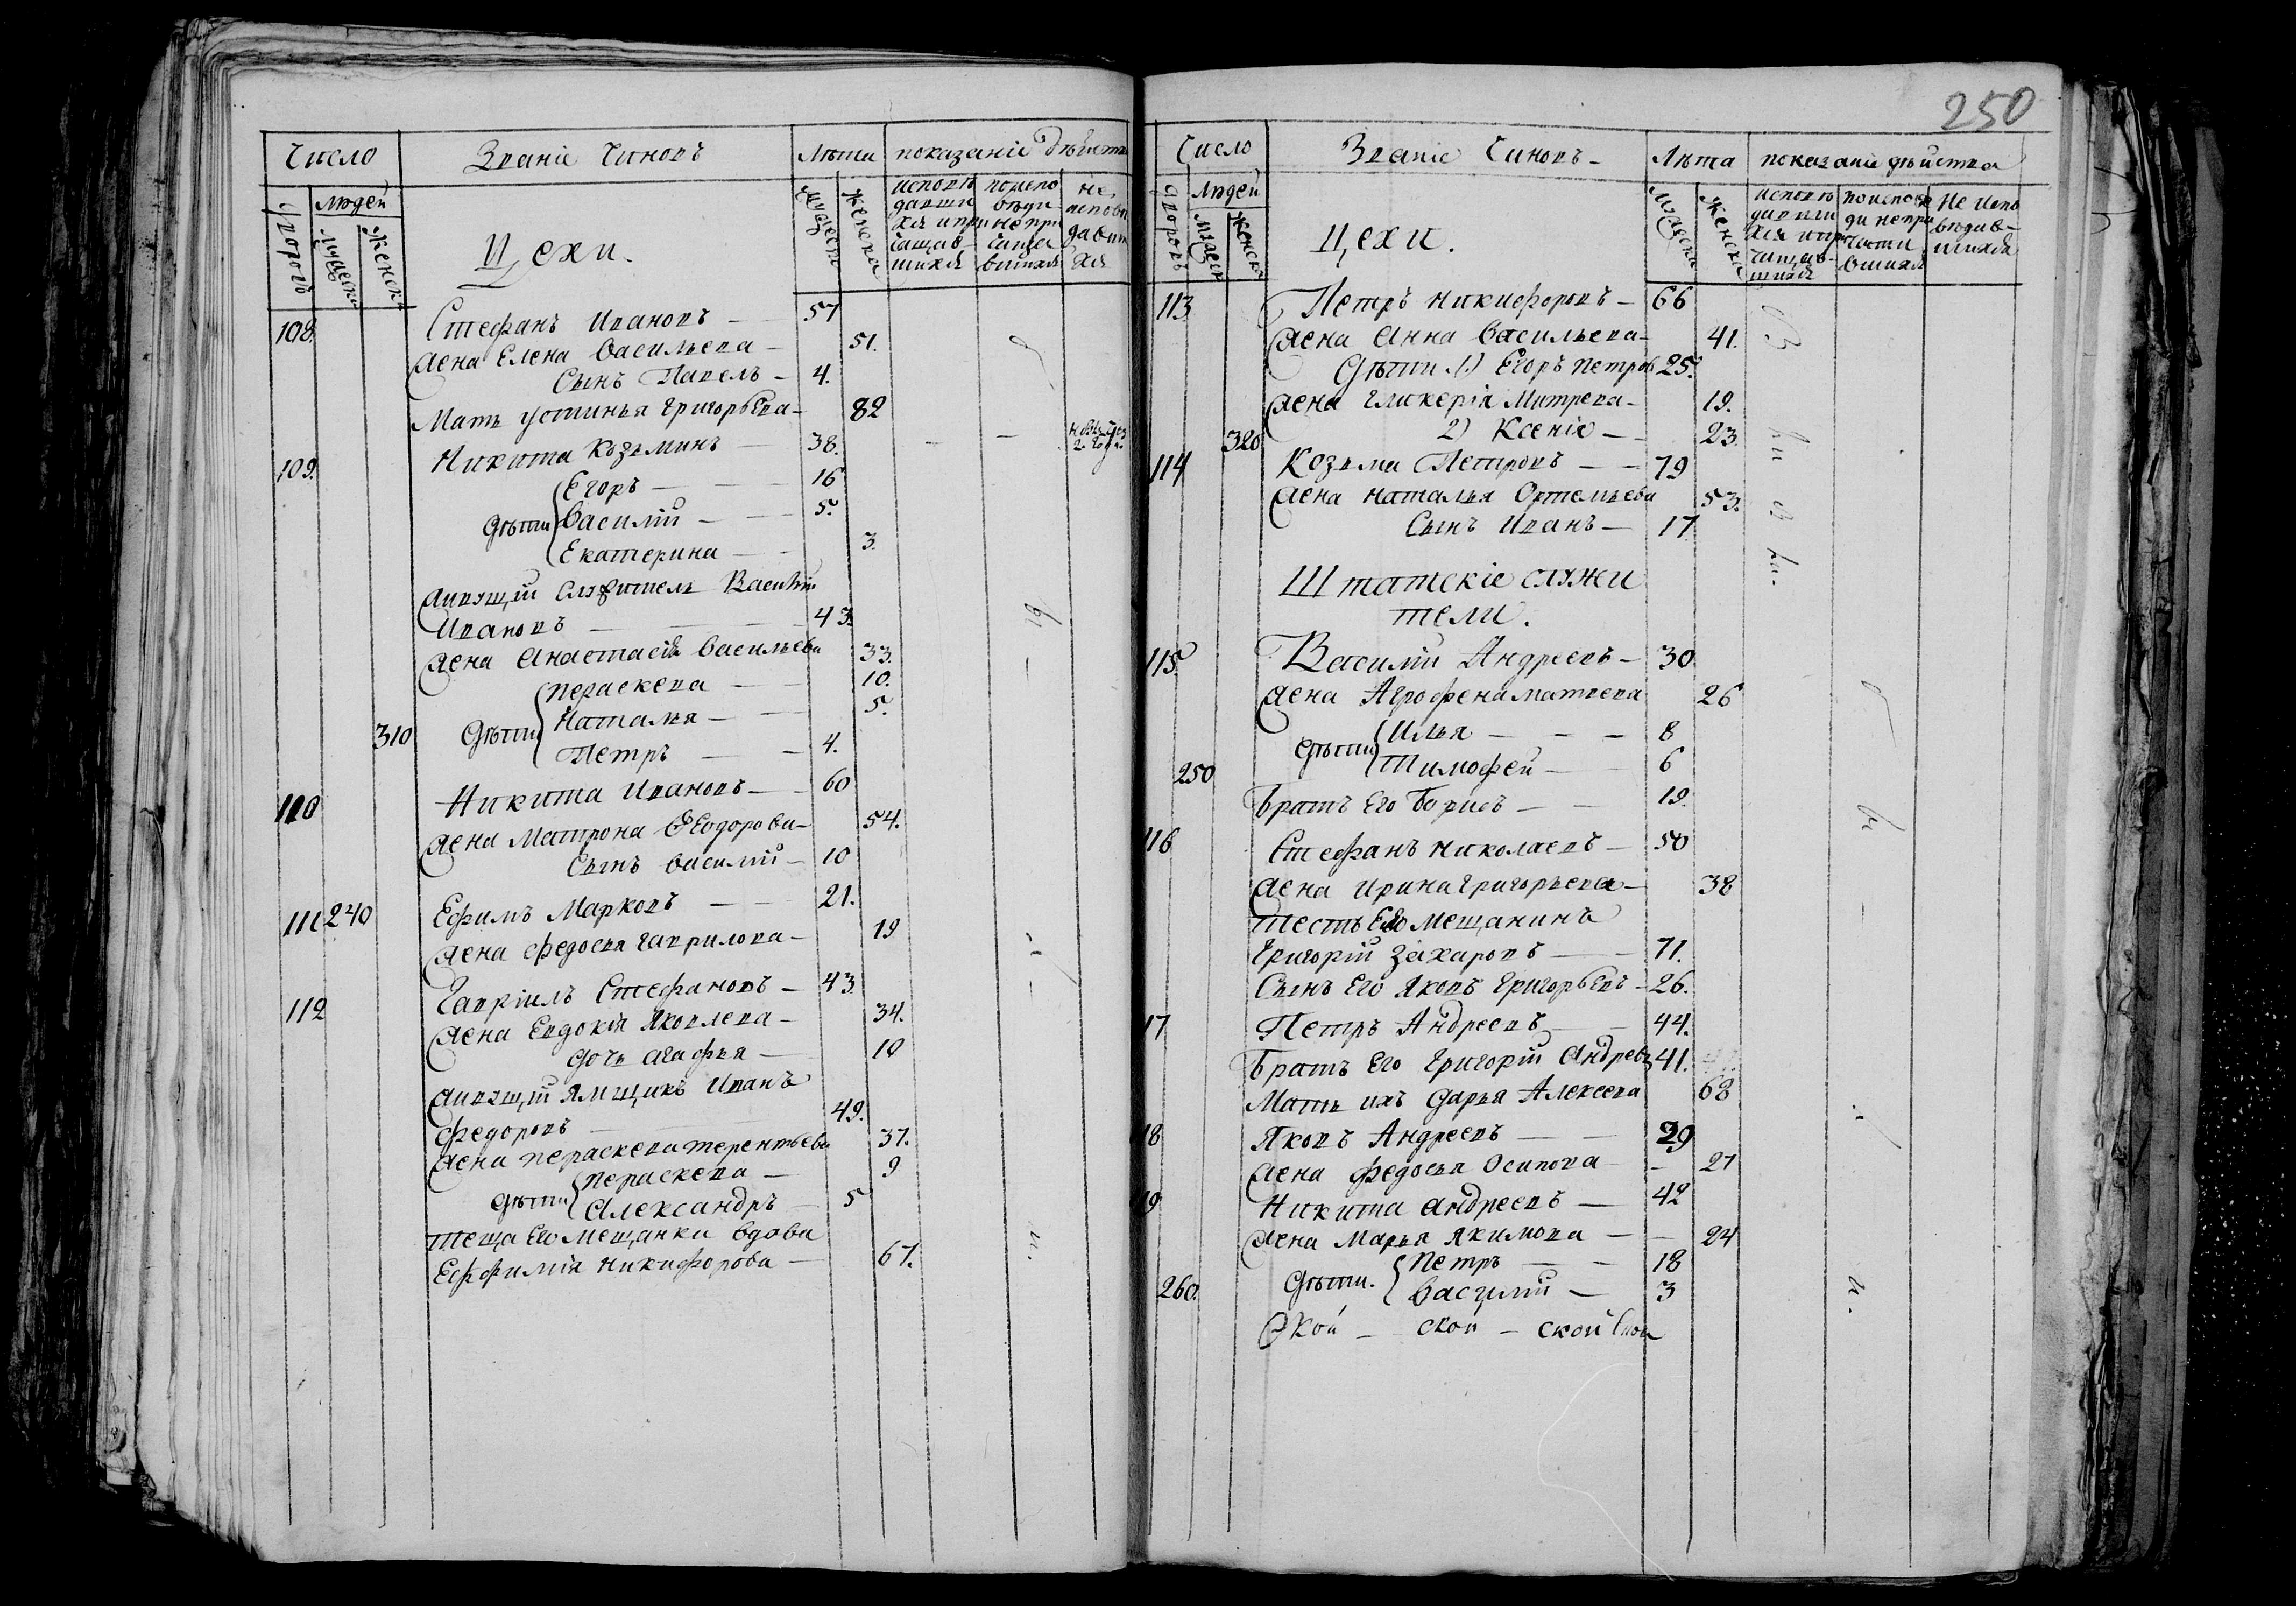 250
Число Званіе Чиновъ Лѣта показаніе дѣйства
Дворовъ людей мужеска женска
мужеск женска
исповѣдавшихся и причащавшихся
исповѣди не причащавшихся
не исповѣдавшихся
Цехи.
108. Стефанъ Ивановъ — 57
Жена Елена Васильева — 51.
Сынъ Павелъ — 4.
Мать Устинья Григорьева — 82
109. Никита Козьминъ — 38. — —
Дѣти Егоръ — 16
Василій — 5.
Екатерина — 3.
Живущій служитель Василій
Ивановъ — 43.
Жена Анастасія Васильева 33.
Дѣти Пераскева — 10.
Наталья — 5.
310 Петръ — 4.
110 Никита Ивановъ — 60
Жена Матрона Ѳеодорова — 54.
Сынъ Василій — 10
111 240 Ефимъ Марковъ — 21.
Жена Федосья Гаврилова — 19
112 Гавріилъ Стефановъ — 43
Жена Евдокія Яковлева — 34.
Дочь Агафья — 10
Живущій Ямщикъ Иванъ
Федоровъ — 49.
Жена Пераскева Терентьева 37.
Дѣти Пераскева — 9
Александръ — 5
Теща Его Мещанки вдова
Ефимія Никифорова — 67.
Число Званіе Чиновъ — Лѣта показаніе дѣйства
Дворовъ Людей мужеск женска
мужеска женска
исповѣдавшихся и причащавшихся
исповѣди не причастившихся
не исповѣдавшихся
Цехи.
113 Петръ Никифоровъ — 66
Жена Анна Васильева — 41.
Дѣти 1) Егоръ Петровъ 25.
Жена Гликерія Митрева — 19.
320 2) Ксенія — 23.
114 Козьма Петровъ — — 79
Жена Наталья Ортемьева 53.
Сынъ Иванъ — 17
Штатскіе служи
тели.
115. Василій Андреевъ — 30
Жена Агрофена Матвева 26
Дѣти Илья — — — 8
250 Тимофей — 6
Братъ Его Борисъ — — 19.
116 Стефанъ Николаевъ — 50
Жена Ирина Григорьева — 38
Тесть Его Мещанинъ
Григорій Захаровъ — 71.
Сынъ Его Яковъ Григорьевъ — 26.
17 Петръ Андреевъ — — 44.
Братъ Его Григорій Андревъ 41.
Мать ихъ Дарья Алексева 68
18 Яковъ Андреевъ — — 29
Жена Федосья Осипова — 27
19 Никита Андреевъ — 42
Жена Марья Якимова — — 24
Дѣти. Петръ — — 18
260. Василій — 3
Ской — ской — ской